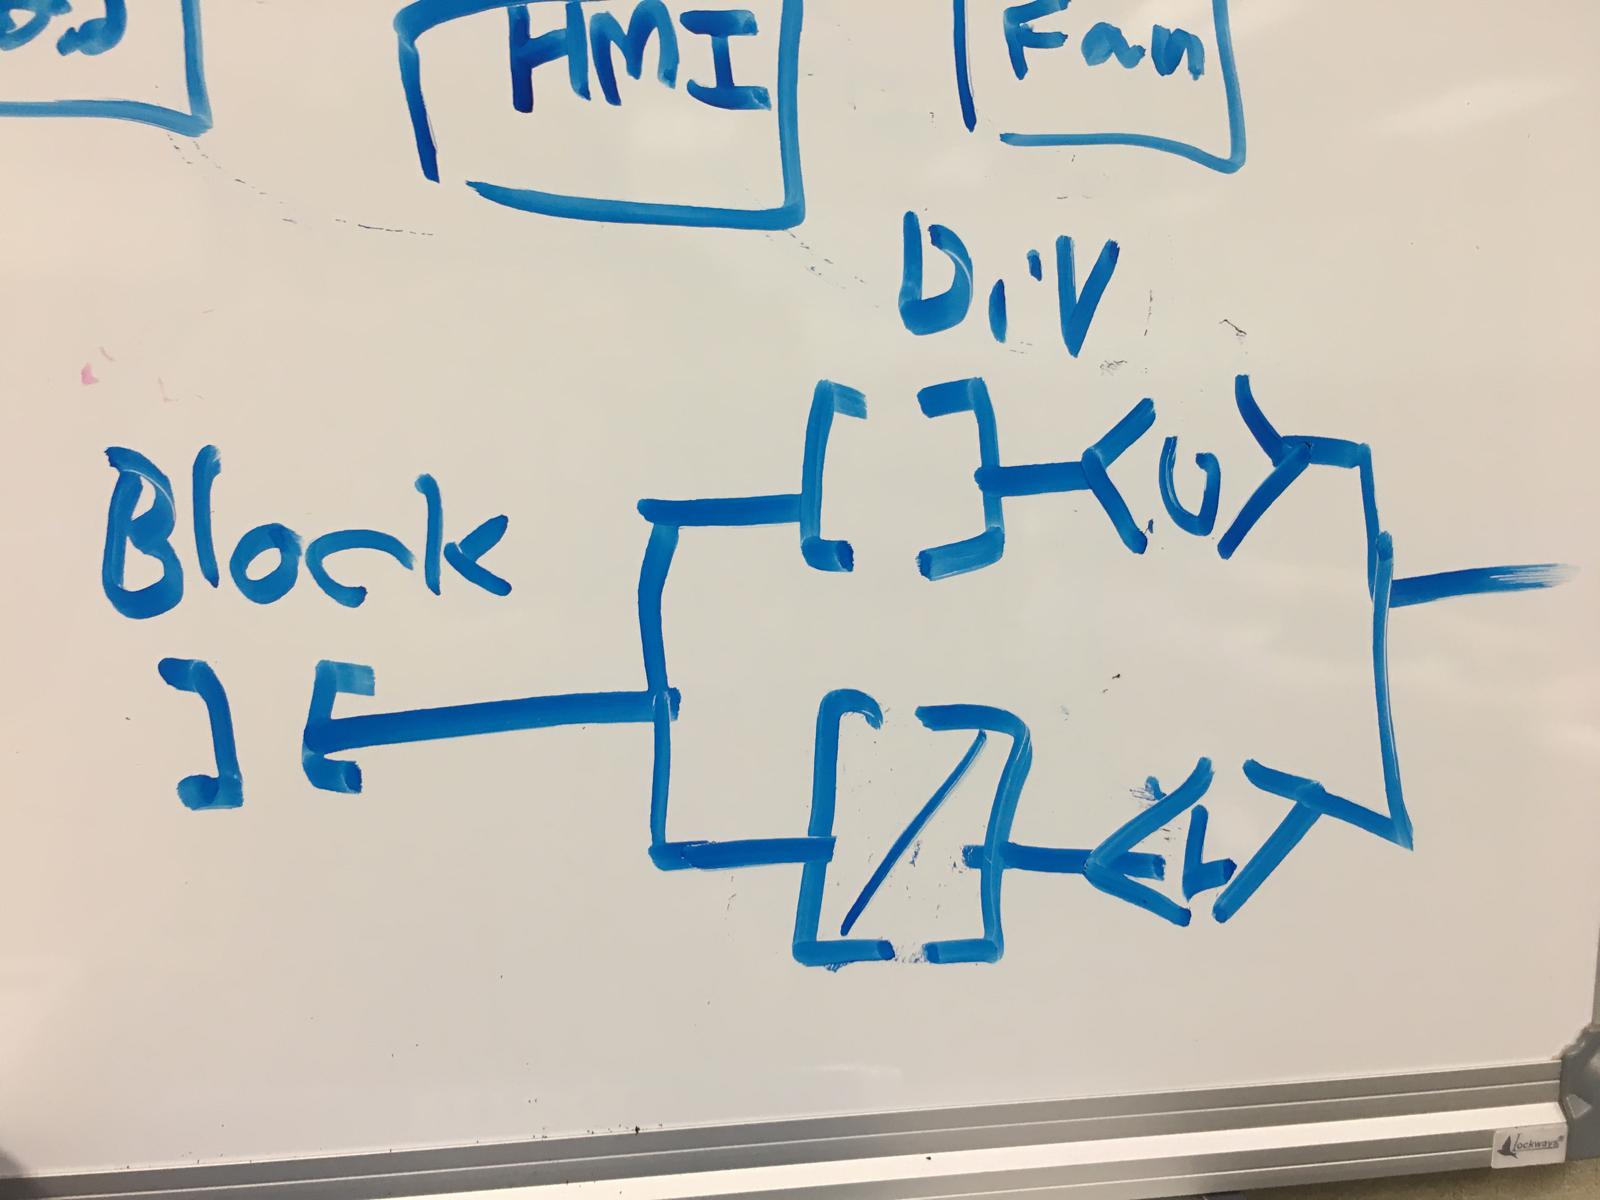 HMI
Fan
Div
Block
U
L
Lockways